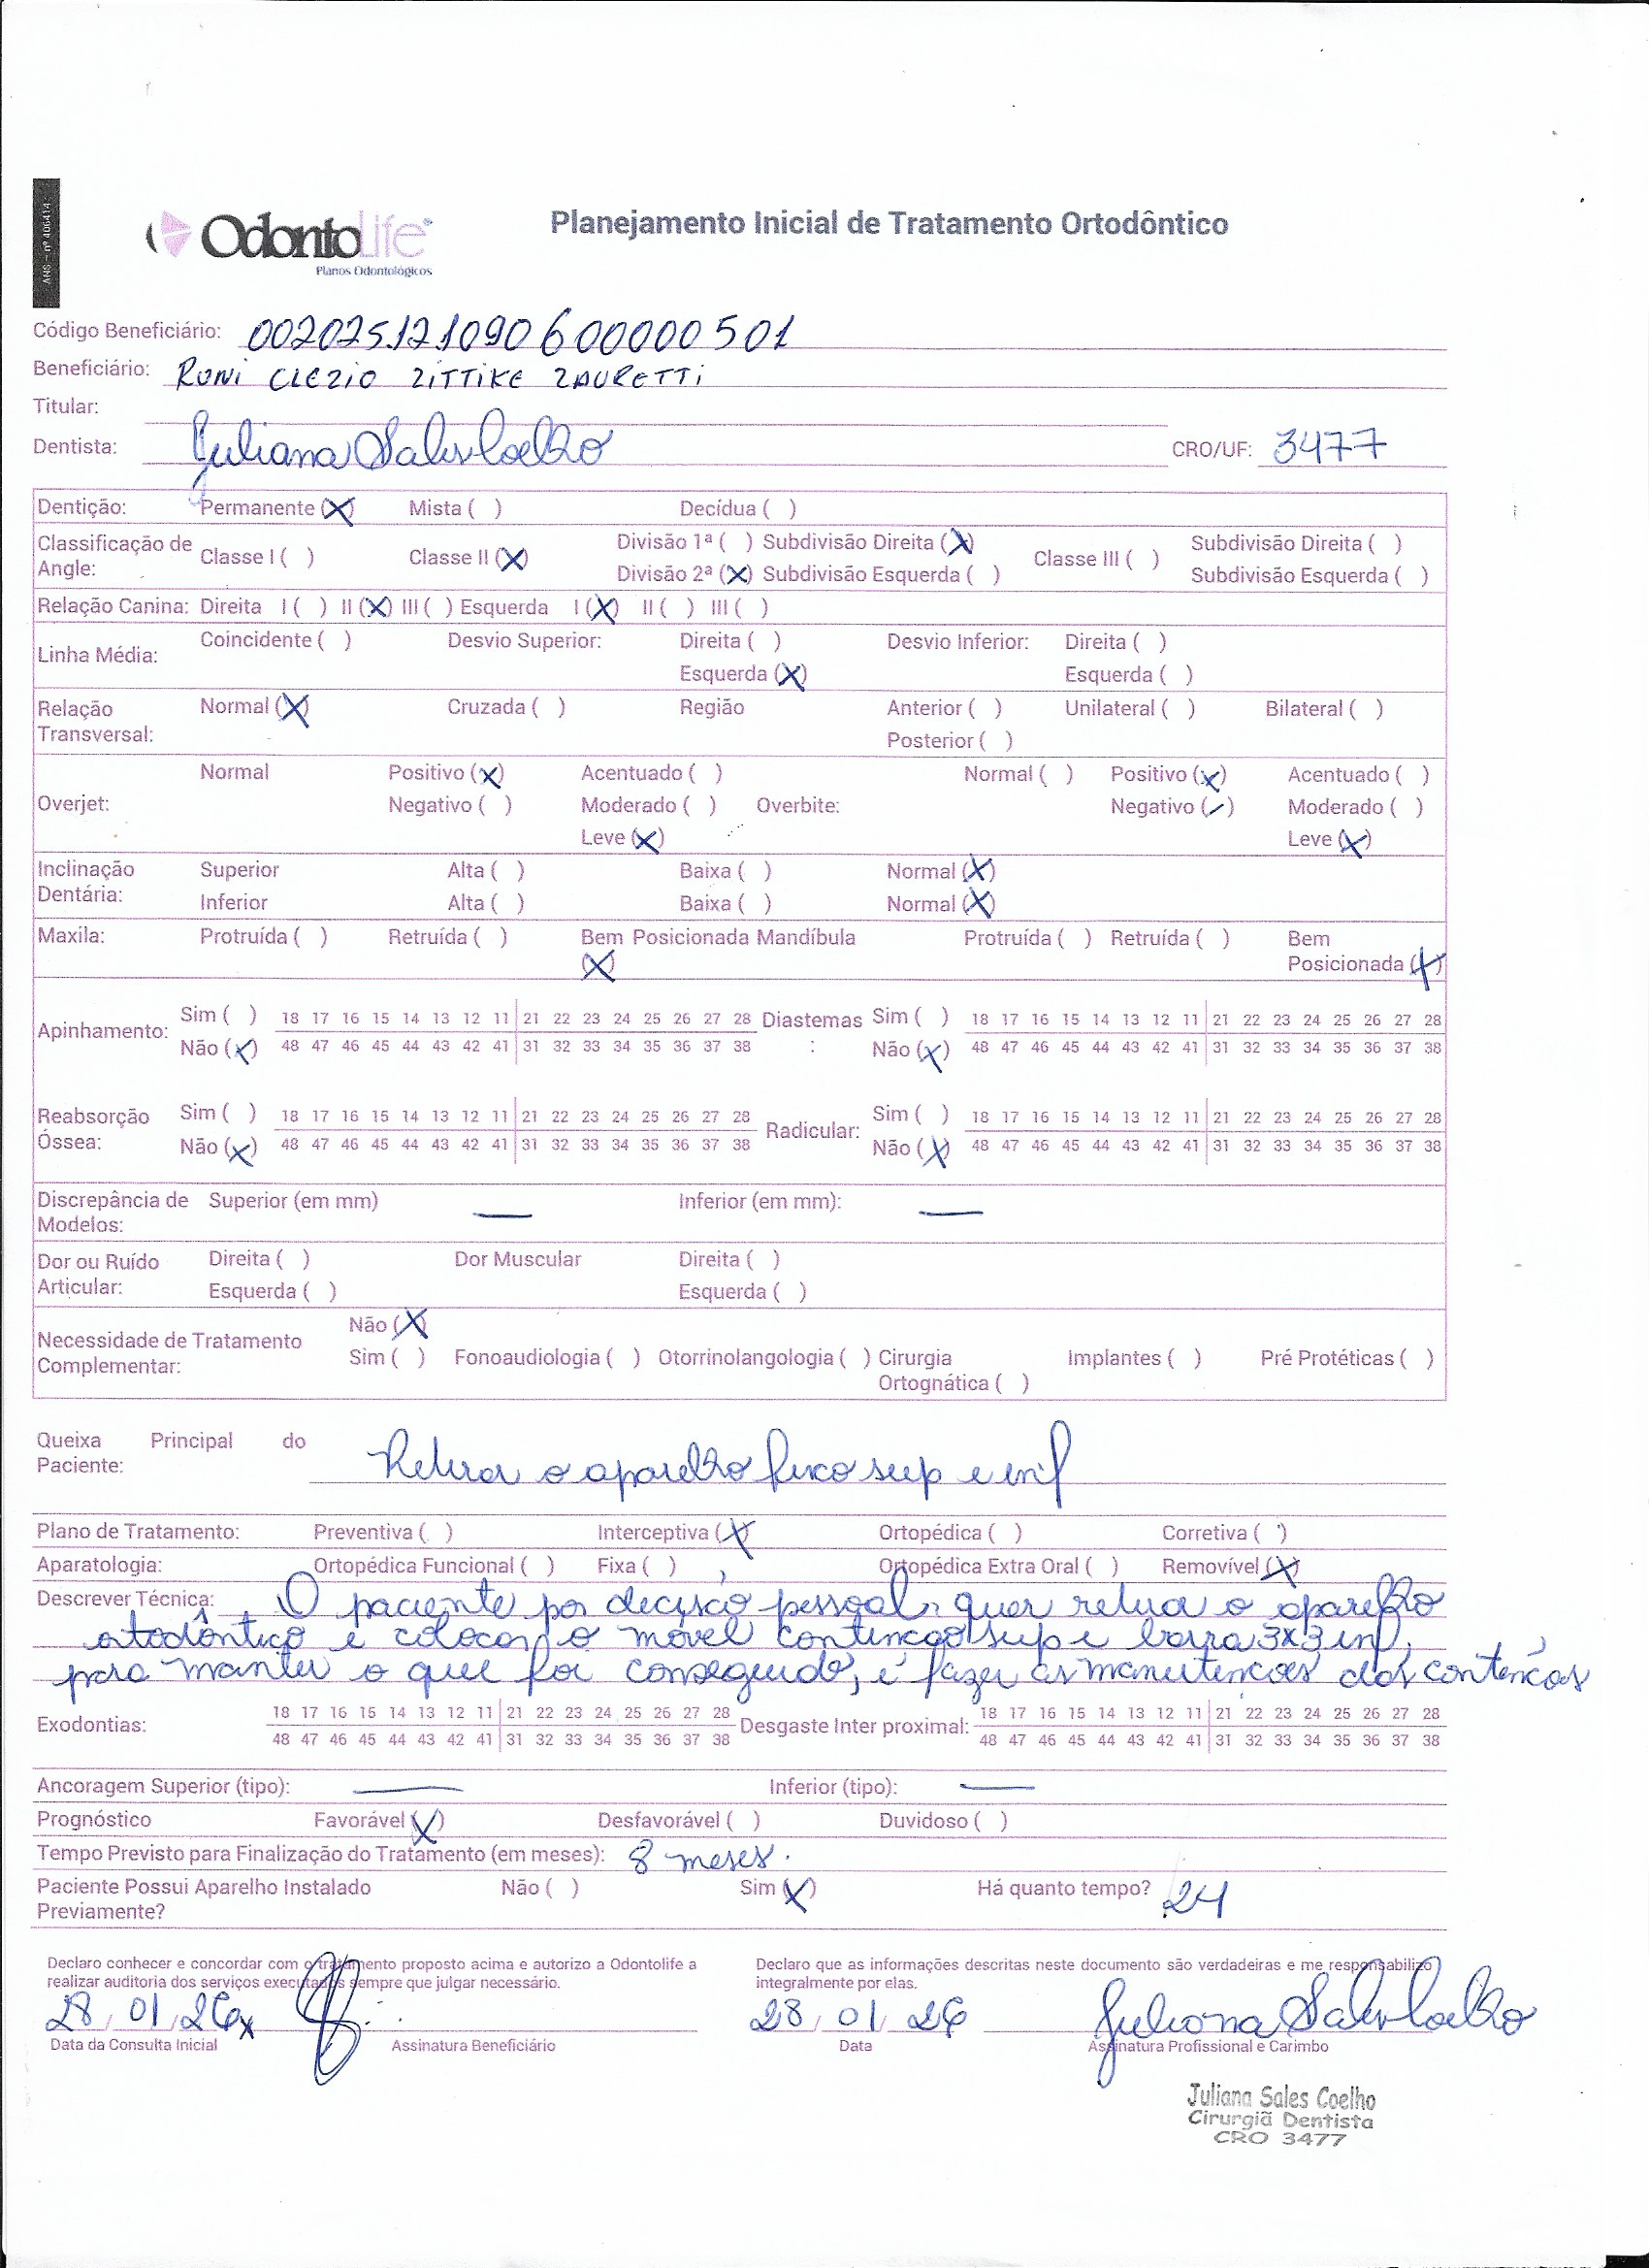 ANS - nº 406414
OdontoLife®
Planos Odontológicos
Planejamento Inicial de Tratamento Ortodôntico
Código Beneficiário: 00202512109060000501
Beneficiário: RONI CLEZIO ZITTIKE ZAURETTI
Titular:
Dentista: Juliana Sales Coelho CRO/UF: 3477
Dentição: Permanente (X) Mista ( ) Decídua ( )
Classificação de Angle: Classe I ( ) Classe II (X) Divisão 1ª ( ) Subdivisão Direita (X) Classe III ( ) Subdivisão Direita ( )
Divisão 2ª (X) Subdivisão Esquerda ( ) Subdivisão Esquerda ( )
Relação Canina: Direita I ( ) II (X) III ( ) Esquerda I (X) II ( ) III ( )
Linha Média: Coincidente ( ) Desvio Superior: Direita ( ) Desvio Inferior: Direita ( )
Esquerda (X) Esquerda ( )
Relação Transversal: Normal (X) Cruzada ( ) Região Anterior ( ) Unilateral ( ) Bilateral ( )
Posterior ( )
Overjet: Normal Positivo (x) Acentuado ( ) Overbite: Normal ( ) Positivo (x) Acentuado ( )
Negativo ( ) Moderado ( ) Negativo (-) Moderado ( )
Leve (x) Leve (x)
Inclinação Dentária: Superior Alta ( ) Baixa ( ) Normal (X)
Inferior Alta ( ) Baixa ( ) Normal (X)
Maxila: Protruída ( ) Retruída ( ) Bem Posicionada (X) Mandíbula Protruída ( ) Retruída ( ) Bem Posicionada (X)
Apinhamento: Sim ( ) 18 17 16 15 14 13 12 11 21 22 23 24 25 26 27 28 Diastemas: Sim ( ) 18 17 16 15 14 13 12 11 21 22 23 24 25 26 27 28
Não (x) 48 47 46 45 44 43 42 41 31 32 33 34 35 36 37 38 Não (x) 48 47 46 45 44 43 42 41 31 32 33 34 35 36 37 38
Reabsorção Óssea: Sim ( ) 18 17 16 15 14 13 12 11 21 22 23 24 25 26 27 28 Radicular: Sim ( ) 18 17 16 15 14 13 12 11 21 22 23 24 25 26 27 28
Não (x) 48 47 46 45 44 43 42 41 31 32 33 34 35 36 37 38 Não (x) 48 47 46 45 44 43 42 41 31 32 33 34 35 36 37 38
Discrepância de Modelos: Superior (em mm) — Inferior (em mm): —
Dor ou Ruído Articular: Direita ( ) Dor Muscular Direita ( )
Esquerda ( ) Esquerda ( )
Necessidade de Tratamento Complementar: Não (X)
Sim ( ) Fonoaudiologia ( ) Otorrinolangologia ( ) Cirurgia Ortognática ( ) Implantes ( ) Pré Protéticas ( )
Queixa Principal do Paciente: Retirar o aparelho fixo sup e inf
Plano de Tratamento: Preventiva ( ) Interceptiva (X) Ortopédica ( ) Corretiva ( )
Aparatologia: Ortopédica Funcional ( ) Fixa ( ) Ortopédica Extra Oral ( ) Removível (X)
Descrever Técnica: O paciente por decisão pessoal, quer retirar o aparelho
ortodôntico e colocar o móvel contencao sup e barra 3x3 inf,
para manter o que foi conseguido, e fazer as manutencoes das contencoes
Exodontias: 18 17 16 15 14 13 12 11 21 22 23 24 25 26 27 28 Desgaste Inter proximal: 18 17 16 15 14 13 12 11 21 22 23 24 25 26 27 28
48 47 46 45 44 43 42 41 31 32 33 34 35 36 37 38 48 47 46 45 44 43 42 41 31 32 33 34 35 36 37 38
Ancoragem Superior (tipo): — Inferior (tipo): —
Prognóstico Favorável (X) Desfavorável ( ) Duvidoso ( )
Tempo Previsto para Finalização do Tratamento (em meses): 8 meses.
Paciente Possui Aparelho Instalado Previamente? Não ( ) Sim (X) Há quanto tempo? 24
Declaro conhecer e concordar com o tratamento proposto acima e autorizo a Odontolife a
realizar auditoria dos serviços executados sempre que julgar necessário.
28/01/26 x
Data da Consulta Inicial Assinatura Beneficiário
Declaro que as informações descritas neste documento são verdadeiras e me responsabilizo
integralmente por elas.
28/01/26 Juliana Sales Coelho
Data Assinatura Profissional e Carimbo
Juliana Sales Coelho
Cirurgiã Dentista
CRO 3477